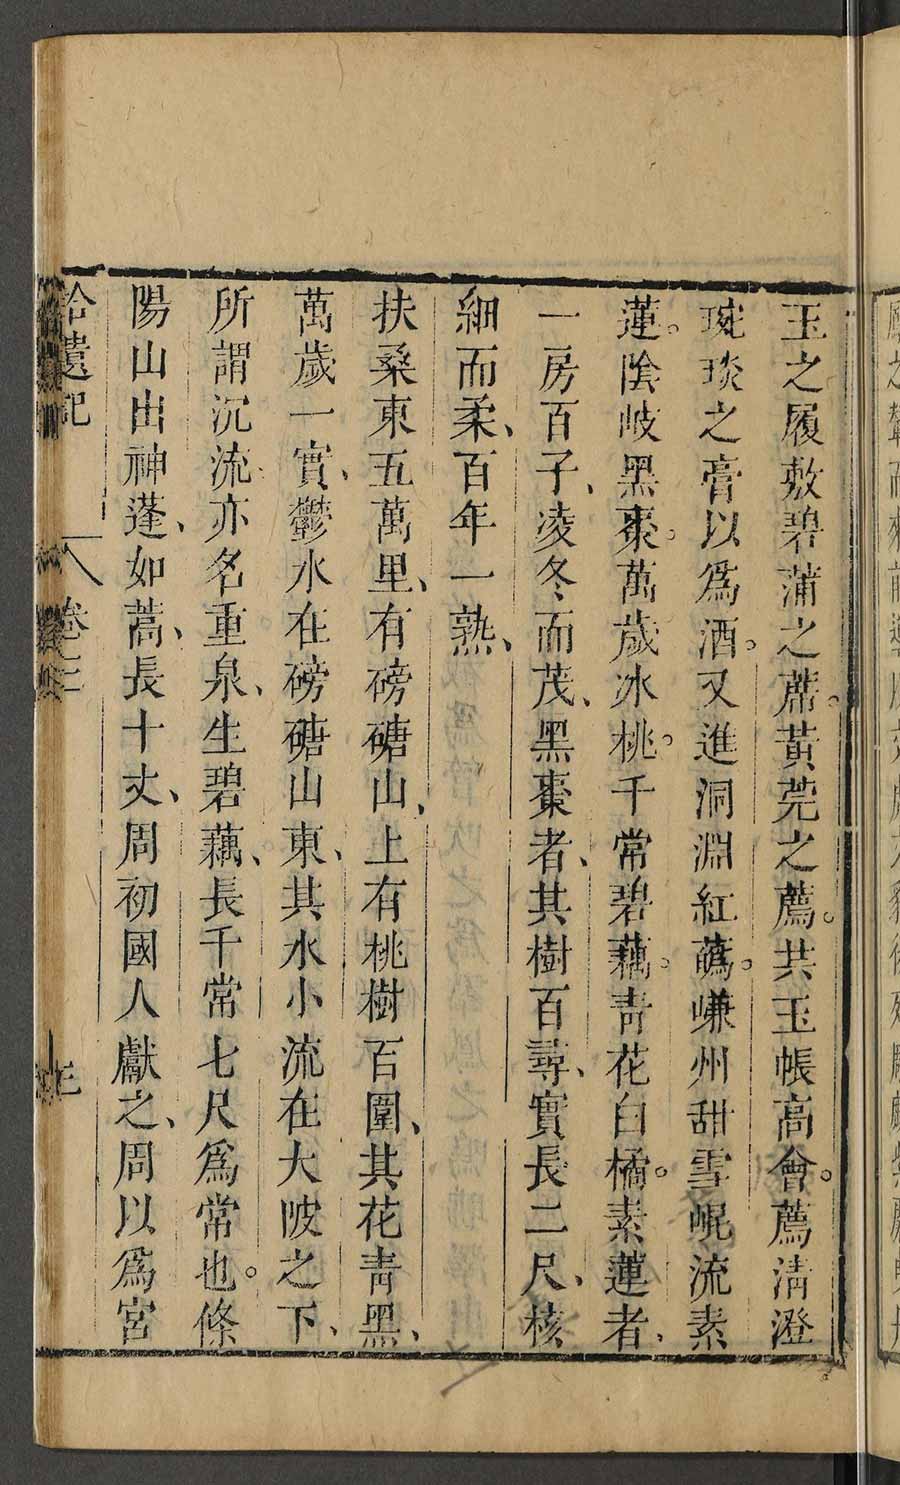 玉之履敷碧蒲之蓆。黃莞之薦。共玉帳高會。薦清澄
琬琰之膏以爲酒。又進洞淵紅蘤。嵰州甜雪崐流素
蓮。陰岐黑棗。萬歲冰桃。千常碧藕。靑花白橘。素蓮者、
一房百子、凌冬而茂、黑棗者、其樹百尋、實長二尺、核
細而柔、百年一熟、
扶桑東五萬里、有磅磄山、上有桃樹百圍、其花靑黑、
萬歲一實、鬱水在磅磄山東、其水小流在大陂之下、
所謂沉流亦名重泉、生碧藕、長千常七尺爲常也。條
陽山出神蓬、如蒿、長十丈、周初國人獻之、周以爲宮
拾遺記
卷之三